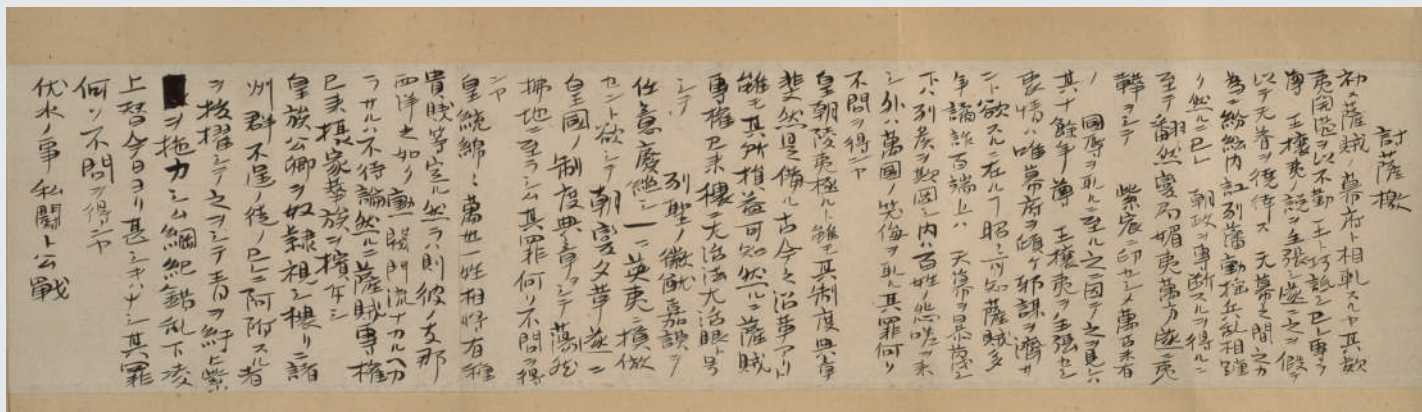 討薩檄
初メ薩賊ノ幕府ト相軋スルヤ其款
夷開港ヲ以不勤王ト巧詆シ己レ専ラ
尊 王攘夷ノ説ヲ主張シ遂ニ之ヲ假テ
以テ天眷ヲ徼倖ス 天幕之間之カ
為ニ紛紜内訌列藩動揺兵乱相踵
ク然ルニ己レ 朝政ヲ専断スルヲ得ルニ
至テ翻然變局媚夷萬方遂ニ夷
鞾ヲシテ 紫宸ニ印セシメ萬古未有
ノ 國辱ヲ取ルニ至ル之ニ因テ之ヲ見レハ
其十餘年尊 王攘夷ヲ主張セシ
衷情ハ唯幕府ヲ傾ケ邪謀ヲ濟サ
ント欲スルニ在ルヿ昭〻可知薩賊多
年譎詐百端上ハ 天幕ヲ暴蔑シ
下ハ列矦ヲ欺罔シ内ハ百姓ノ怨嗟ヲ来
シ外ハ萬國ノ笑侮ヲ取ル其罪何ソ
不問ヲ得ンヤ
皇朝陵夷極ルト雖モ其制度典章
斐然是備ル古今之沿革アリト
雖モ其所損益可知然ルニ薩賊
専權已来猥ニ大活法大活眼ト号
シテ 列聖ノ徽猷嘉謨ヲ
任意廢絶シ一ニ英夷ニ摸倣
セント欲シテ 朝變夕革遂ニ
皇國ノ制度典章ヲシテ蕩然
拂地ニ至ラシム其罪何ソ不問得
ンヤ
皇統綿〻萬世一姓相傳有種
貴賤等定ル然ラハ則彼ノ支那
西洋之如ク勲閥門流ナカルヘカ
ラサルハ不待論然ルニ薩賊専權
已来摂家華族ヲ擯斥シ
皇族公卿ヲ奴隷視シ猥リニ諸
州群不逞ノ徒ノ己ニ阿附スル者
ヲ抜擢シテ之ヲシテ青ヲ紆ヒ紫
ヲ拖カシム綱紀錯乱下凌
上替今日ヨリ甚シキハナシ其罪
何ソ不問ヲ得ンヤ
伏水ノ事私鬪ト公戰